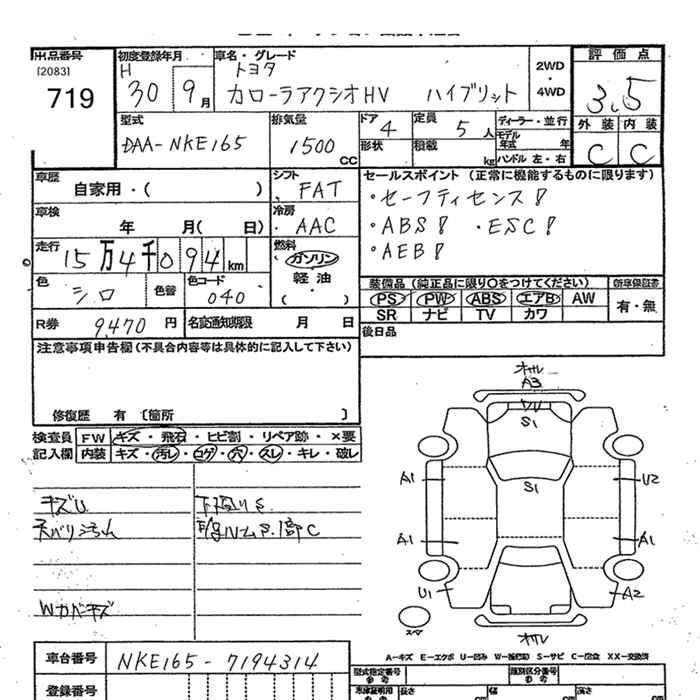 出品番号
[2083]
719
初度登録年月
H 30 9月
車名・グレード
トヨタ
カローラアクシオHV ハイブリット
2WD
・
4WD
評価点
3.5
外装 内装
C C
型式
DAA-NKE165
排気量
1500 CC
ドア 4
定員 5人
形状
積載 kg
ディーラー・並行
モデル年式 年
ハンドル 左・右
車歴
自家用・( )
シフト
FAT
車検
年 月( 日)
冷房
AAC
セールスポイント (正常に機能するものに限ります)
・セーフティセンス!
・ABS! ・ESC!
・AEB!
走行
15万4千094km
燃料
ガソリン
軽油
・( )
色
シロ
色替
色コード
040
装備品 (純正品に限り○をつけてください)
PS PW ABS エアB AW
SR ナビ TV カワ
新車保証書
有・無
R券 9470円
名変通知期限 月 日
後日品
注意事項申告欄 (不具合内容等は具体的に記入して下さい)
修復歴 有 [箇所 ]
検査員記入欄
FW キズ・飛石・ヒビ割・リペア跡・×要
内装 キズ・汚レ・コゲ・穴・スレ・キレ・破レ
キズU
天バリ
下回りS
S.1部C
Wカバーキズ
オサル
A3
S1
S1
A1
U2
A1
A1
U1
A2
スペア
オサル
A-キズ E-エクボ U-凹み W-補修跡 S-サビ C-腐食 XX-交換済
車台番号
NKE165-7194314
登録番号
型式指定番号
参考
類別区分番号
参考
長さ cm
幅 cm
高さ cm